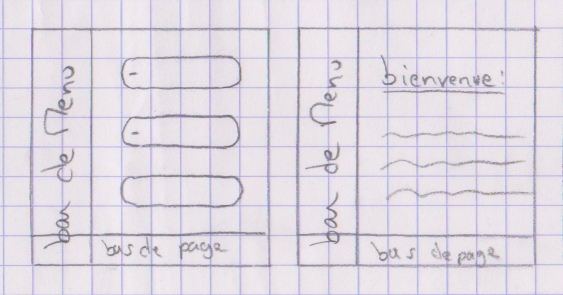 bar de Menu
-
-
bas de page
bar de Menu
bienvenue:
bas de page